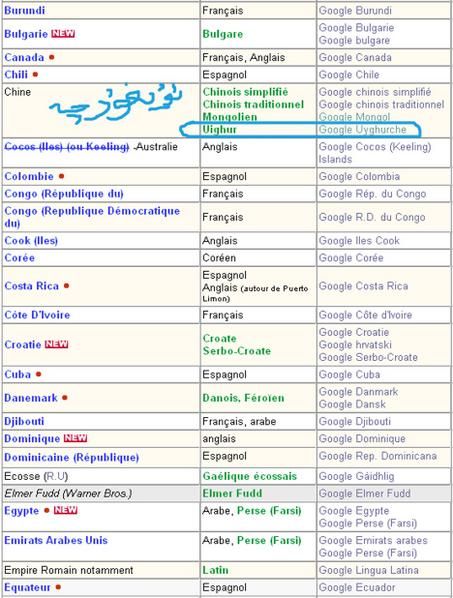 Burundi Français Google Burundi
Bulgarie NEW Bulgare Google Bulgarie
Google bulgare
Canada Français, Anglais Google Canada
Chili Espagnol Google Chile
Chine Chinois simplifié Google chinois simplifié
Chinois traditionnel Google chinois traditionnel
Mongolien Google Mongol
Uighur Google Uyghurche
Cocos (Iles) (ou Keeling) -Australie Anglais Google Cocos (Keeling)
Islands
Colombie Espagnol Google Colombia
Congo (République du) Français Google Rép. du Congo
Congo (Republique Démocratique
du) Français Google R.D. du Congo
Cook (Iles) Anglais Google Iles Cook
Corée Coréen Google Corée
Costa Rica Espagnol
Anglais (autour de Puerto
Limon) Google Costa Rica
Côte D'Ivoire Français Google Côte d'Ivoire
Croatie NEW Croate
Serbo-Croate Google Croatie
Google hrvatski
Google Serbo-Croate
Cuba Espagnol Google Cuba
Danemark Danois, Féroïen Google Danmark
Google Dansk
Djibouti Français, arabe Google Djibouti
Dominique NEW anglais Google Dominique
Dominicaine (République) Espagnol Google Rep. Dominicana
Ecosse (R.U) Gaélique écossais Google Gáidhlig
Elmer Fudd (Warner Bros.) Elmer Fudd Google Elmer Fudd
Egypte NEW Arabe, Perse (Farsi) Google Egypte
Google Perse (Farsi)
Emirats Arabes Unis Arabe, Perse (Farsi) Google Emirats arabes
Google Perse (Farsi)
Empire Romain notamment Latin Google Lingua Latina
Equateur Espagnol Google Ecuador